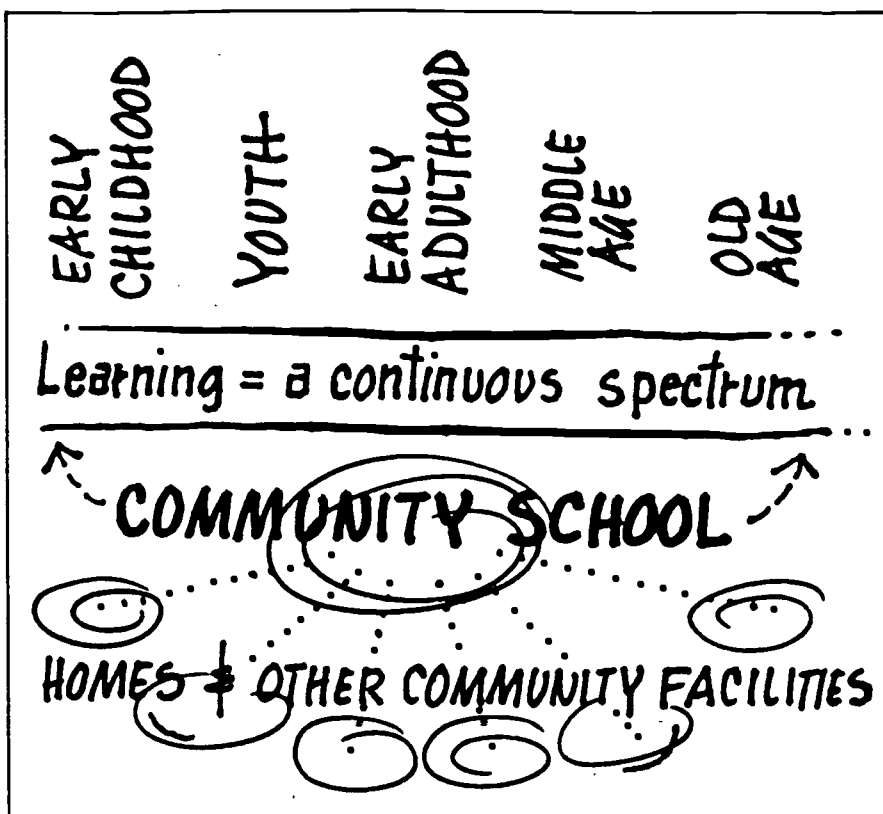 EARLY
CHILDHOOD
YOUTH
EARLY
ADULTHOOD
MIDDLE
AGE
OLD
AGE
Learning = a continuous spectrum
COMMUNITY SCHOOL
HOMES & OTHER COMMUNITY FACILITIES